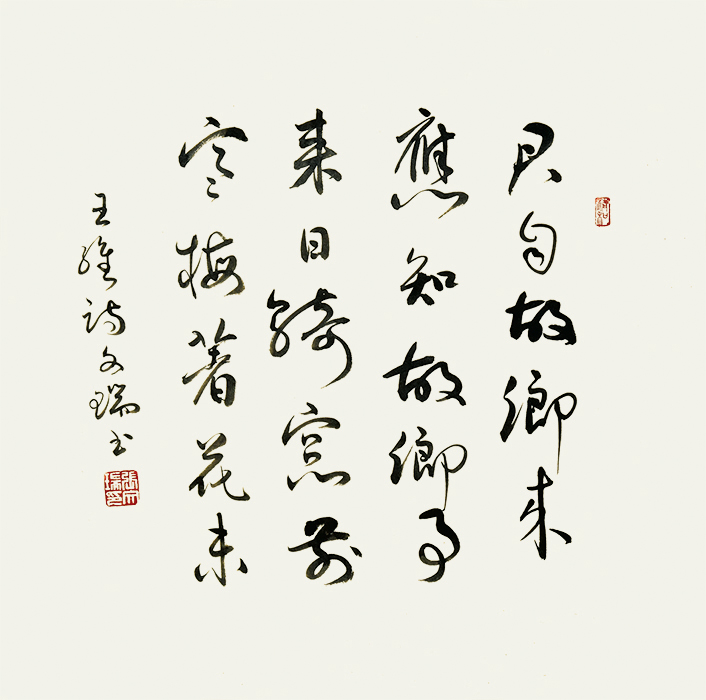 君自故鄉來
應知故鄉事
來日綺窓前
寒梅著花未
王維詩文瑞书
張文瑞印